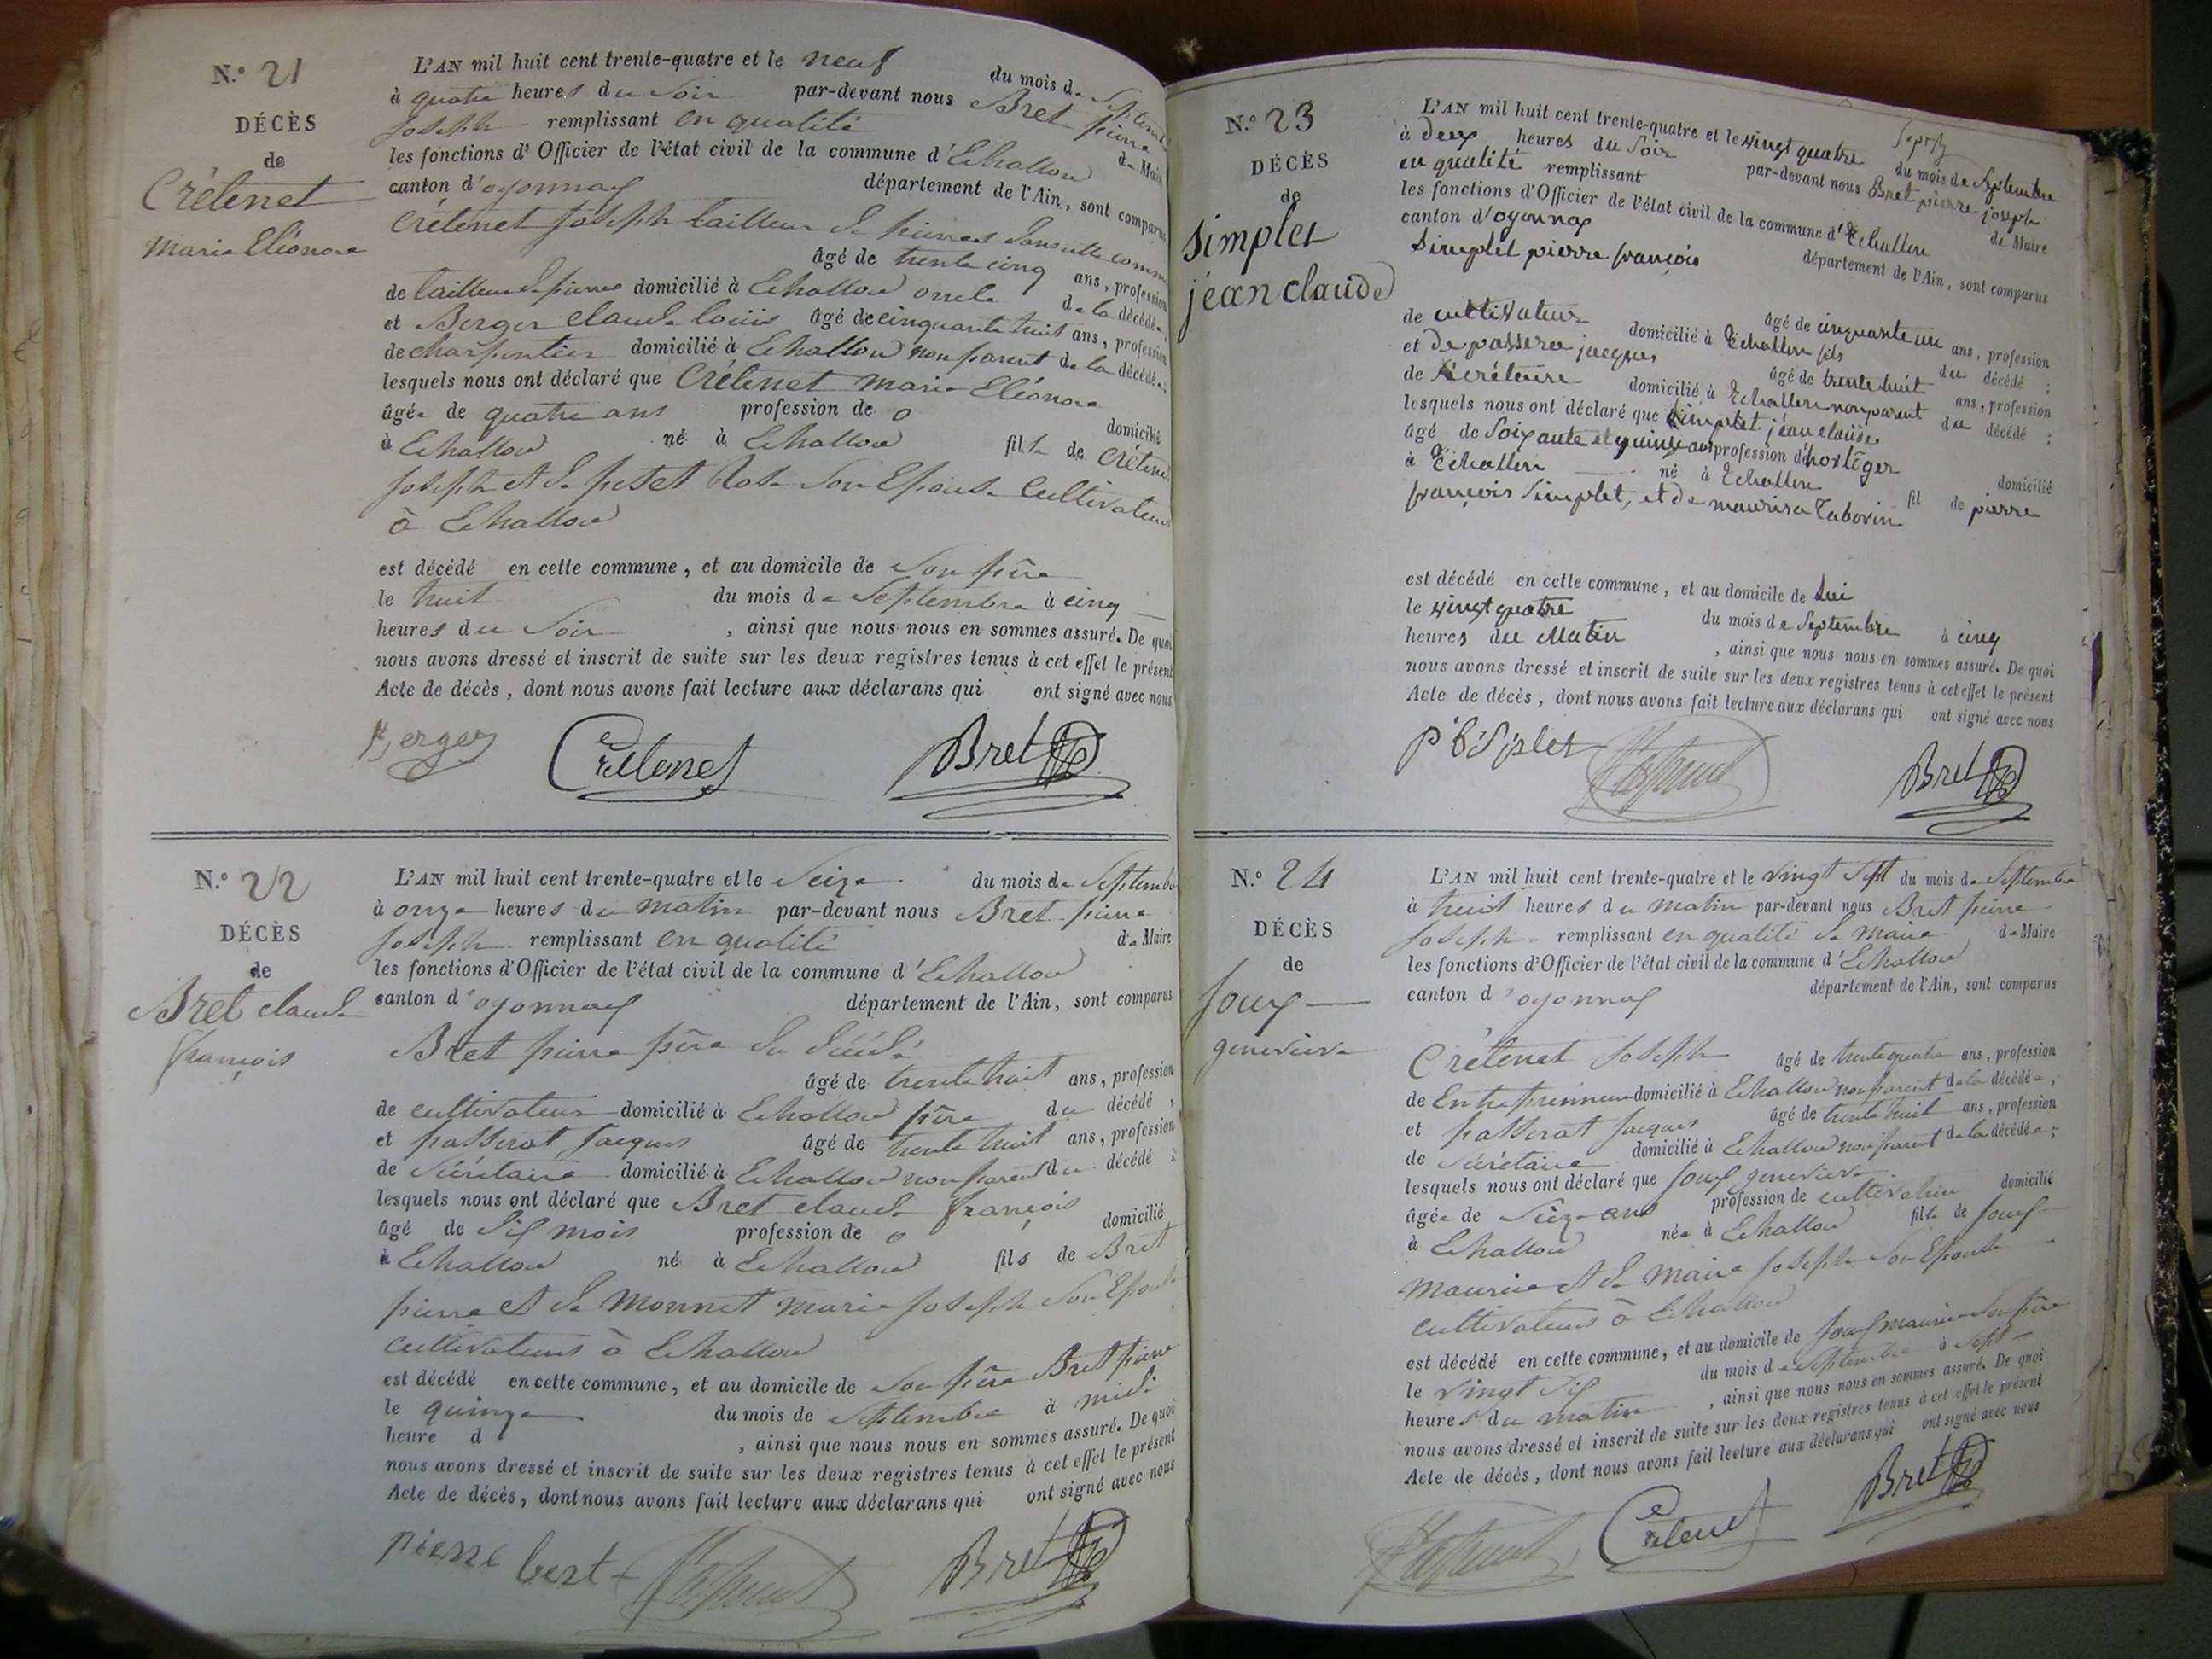 N.° 21
DÉCÈS
de
Crétenet
Marie Eléonore
L'AN mil huit cent trente-quatre et le neuf du mois de Septembre
à quatre heures du Soir par-devant nous Bret pierre
Joseph remplissant en qualité de Maire
les fonctions d'Officier de l'état civil de la commune d'Echallon
canton d'oyonnax département de l'Ain, sont comparus
Crétenet Joseph tailleur de pierres dans cette commune
âgé de trente cinq ans, profession
de tailleur de pierres domicilié à Echallon oncle de la décédée
et Berger claude louis âgé de cinquante huit ans, profession
de charpentier domicilié à Echallon non parent de la décédée
lesquels nous ont déclaré que Crétenet Marie Eléonore
âgée de quatre ans profession de 0 domicilié
à Echallon né à Echallon fille de Crétenet
Joseph et de putet Rose Son Epouse Cultivateurs
à Echallon
est décédé en cette commune, et au domicile de Son père
le huit du mois de Septembre à cinq
heures du Soir, ainsi que nous nous en sommes assuré. De quoi
nous avons dressé et inscrit de suite sur les deux registres tenus à cet effet le présent
Acte de décès, dont nous avons fait lecture aux déclarans qui ont signé avec nous
Berger Crétenet Bret
N.° 22
DÉCÈS
de
Bret claude
françois
L'AN mil huit cent trente-quatre et le Seize du mois de Septembre
à onze heures du matin par-devant nous Bret pierre
Joseph remplissant en qualité de Maire
les fonctions d'Officier de l'état civil de la commune d'Echallon
canton d'oyonnax département de l'Ain, sont comparus
Bret pierre père du décédé
âgé de trente huit ans, profession
de cultivateur domicilié à Echallon père du décédé,
et passerat Jacques âgé de trente huit ans, profession
de Sécrétaire domicilié à Echallon non parent du décédé;
lesquels nous ont déclaré que Bret claude françois
âgé de Six mois profession de 0 domicilié
à Echallon né à Echallon fils de Bret
pierre et de Monnet Marie Joseph Son Epouse
cultivateurs à Echallon
est décédé en cette commune, et au domicile de Son père Bret pierre
le quinze du mois de Septembre à midi
heure d, ainsi que nous nous en sommes assuré. De quoi
nous avons dressé et inscrit de suite sur les deux registres tenus à cet effet le présent
Acte de décès, dont nous avons fait lecture aux déclarans qui ont signé avec nous
pierre bert Bret
N.° 23
DÉCÈS
de
Simplet
jean claude
L'AN mil huit cent trente-quatre et le vingt quatre du mois de Septembre
à deux heures du Soir par-devant nous Bret pierre joseph
en qualité remplissant de Maire
les fonctions d'Officier de l'état civil de la commune d'Echallon
canton d'oyonnax département de l'Ain, sont comparus
Simplet pierre françois
âgé de cinquante un ans, profession
de cultivateur domicilié à Echallon fils du décédé;
et De passera jacques âgé de trente huit ans, profession
de Sécrétaire domicilié à Echallon non parent du décédé;
lesquels nous ont déclaré que Simplet jean claude
âgé de Soixante et quinze ans profession d'horloger domicilié
à Echallon né à Echallon fil de pierre
françois Simplet, et de maurisa Taborin
est décédé en cette commune, et au domicile de lui
le vingt quatre du mois de Septembre à cinq
heures du Matin, ainsi que nous nous en sommes assuré. De quoi
nous avons dressé et inscrit de suite sur les deux registres tenus à cet effet le présent
Acte de décès, dont nous avons fait lecture aux déclarans qui ont signé avec nous
Bret
N.° 24
DÉCÈS
de
Joux
genevieve
L'AN mil huit cent trente-quatre et le vingt Sept du mois de Septembre
à huit heures du matin par-devant nous Bret pierre
Joseph remplissant en qualité de Maire de Maire
les fonctions d'Officier de l'état civil de la commune d'Echallon
canton d'oyonnax département de l'Ain, sont comparus
Crétenet Joseph âgé de trente quatre ans, profession
de Entreprenneur domicilié à Echallon non parent de la décédée;
et passerat Jacques âgé de trente huit ans, profession
de Sécrétaire domicilié à Echallon non parent de la décédée;
lesquels nous ont déclaré que Joux genevieve
âgée de Seize ans profession de cultivatrice domicilié
à Echallon née à Echallon fille de Joux
Maurice et de Marie Joseph Son Epouse
cultivateurs à Echallon
est décédé en cette commune, et au domicile de Joux maurice Son père
le vingt Six du mois de Septembre à Sept
heures du matin, ainsi que nous nous en sommes assuré. De quoi
nous avons dressé et inscrit de suite sur les deux registres tenus à cet effet le présent
Acte de décès, dont nous avons fait lecture aux déclarans qui ont signé avec nous
Crétenet Bret